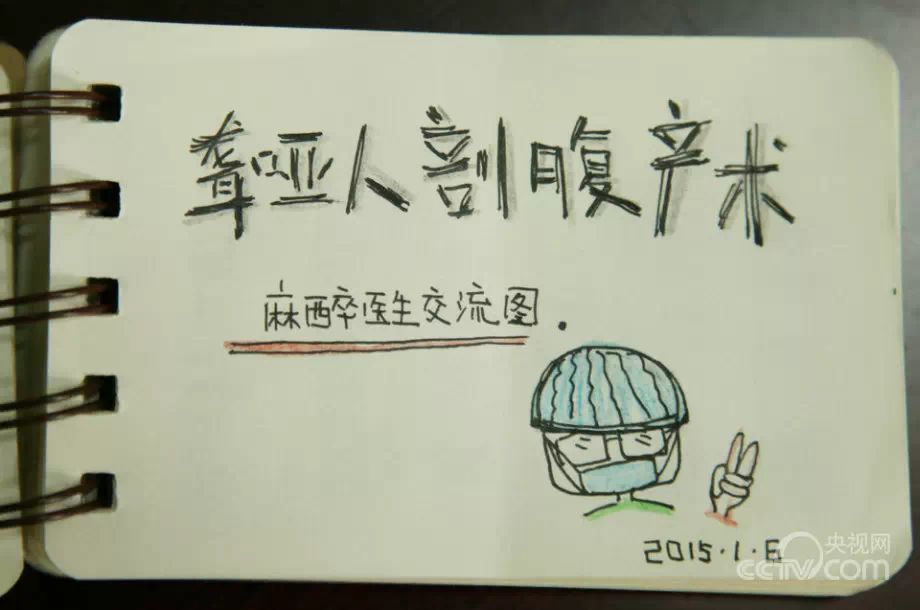 聋哑人剖腹产术
麻醉医生交流图.
2015·1·6
央视网
CCTV.com